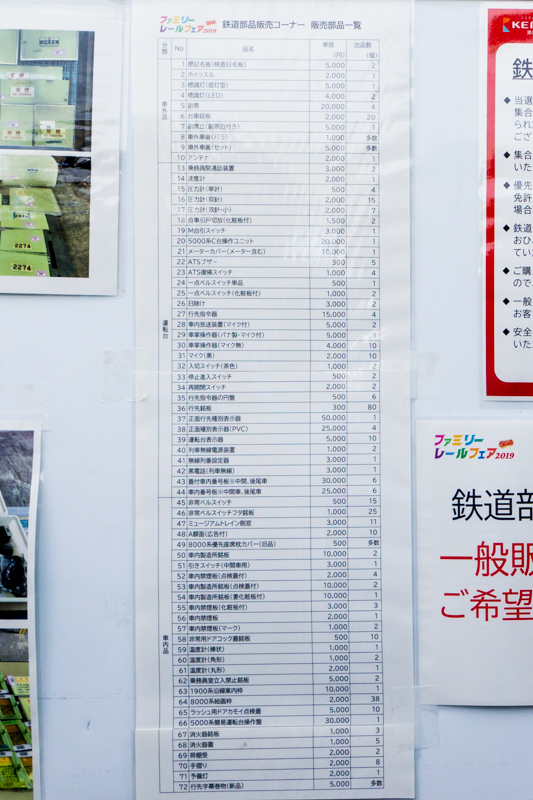 ファミリー
レールフェア2019
鉄道部品販売コーナー 販売部品一覧
分類 No 品名 単価(円) 出品数(個)
車外品
1 標記名板(検査日名板) 5,000 2
2 ホイッスル 2,000 1
3 標識灯(提灯型) 5,000 1
4 標識灯(LED) 4,000 2
5 副票 20,000 4
6 台車銘板 2,000 20
7 副票立(副票白付き) 5,000 1
8 車外車番(バラ) 1,000 多数
9 車外車番(セット) 5,000 多数
10 アンテナ 2,000 1
運転台
13 乗務員間通話装置 3,000 2
14 速度計 2,000 1
15 圧力計(単針) 500 4
16 圧力計(双針) 2,000 15
17 圧力計(双針・小) 2,000 7
18 自車引戸切放(化粧板付) 1,500 2
19 M台引スイッチ 3,000 1
20 5000系C台操作ユニット 20,000 1
21 メーターカバー(メーター含む) 10,000 1
22 ATSブザー 300 5
23 ATS復帰スイッチ 1,000 4
24 一点ベルスイッチ単品 500 1
25 一点ベルスイッチ(化粧板付) 1,000 2
26 日除け 3,000 2
27 行先指令器 15,000 4
28 車内放送装置(マイク付) 5,000 2
29 車掌操作器(バナ製・マイク付) 5,000 1
30 車掌操作器(マイク無) 4,000 10
31 マイク(黒) 2,000 10
32 入切スイッチ(茶色) 1,000 2
33 停止進入スイッチ 500 2
34 再開閉スイッチ 2,000 2
35 行先指令器の円盤 500 6
36 行先銘板 300 80
37 正面行先種別表示器 50,000 1
38 正面種別表示器(PVC) 25,000 4
39 運転台表示器 5,000 10
40 列車無線電源装置 1,000 2
41 無線列番設定器 3,000 1
42 黒電話(列車無線) 3,000 1
43 蓋付車内番号板※中間、後尾車 30,000 6
44 車内番号板※中間車、後尾車 25,000 6
車内品
45 非常ベルスイッチ 500 15
46 非常ベルスイッチフタ銘板 1,000 25
47 ミュージアムトレイン側窓 3,000 11
48 A額面(広告付) 2,000 10
49 8000系優先座席枕カバー(旧品) 500 多数
50 車内製造所銘板 10,000 2
51 引きスイッチ(中間車用) 3,000 1
52 車内禁煙板(点検蓋付) 2,000 4
53 車内製造所銘板(点検蓋付) 10,000 2
54 車内製造所銘板(妻化粧板付) 10,000 1
55 車内禁煙板(化粧板付) 3,000 3
56 車内禁煙板 2,000 2
57 車内禁煙板(マーク) 1,000 2
58 非常用ドアコック蓋銘板 500 10
59 温度計(棒状) 1,000 1
60 温度計(角形) 1,000 2
61 温度計(丸形) 2,000 1
62 乗務員室立入禁止銘板 5,000 2
63 1900系沿線案内枠 10,000 1
64 8000系絵画枠 2,000 38
65 ラッシュ用ドアカモイ点検蓋 5,000 10
66 5000系簡易運転台操作盤 30,000 1
67 消火器銘板 1,000 3
68 消火器蓋 1,000 5
69 荷棚受 2,000 2
70 手摺り 2,000 8
71 予備灯 2,000 1
72 行先字幕巻物(新品) 5,000 多数
2274
2274
鉄
◆ 当選
集合
られ
ござ
◆ 集合
いた
◆ 優先
免許
場合
◆ 鉄道
おひ
てい
◆ ご購
ので
◆ 一般
お客
◆ 安全
いた
ファミリー
レールフェア2019
鉄道部
一般販
ご希望